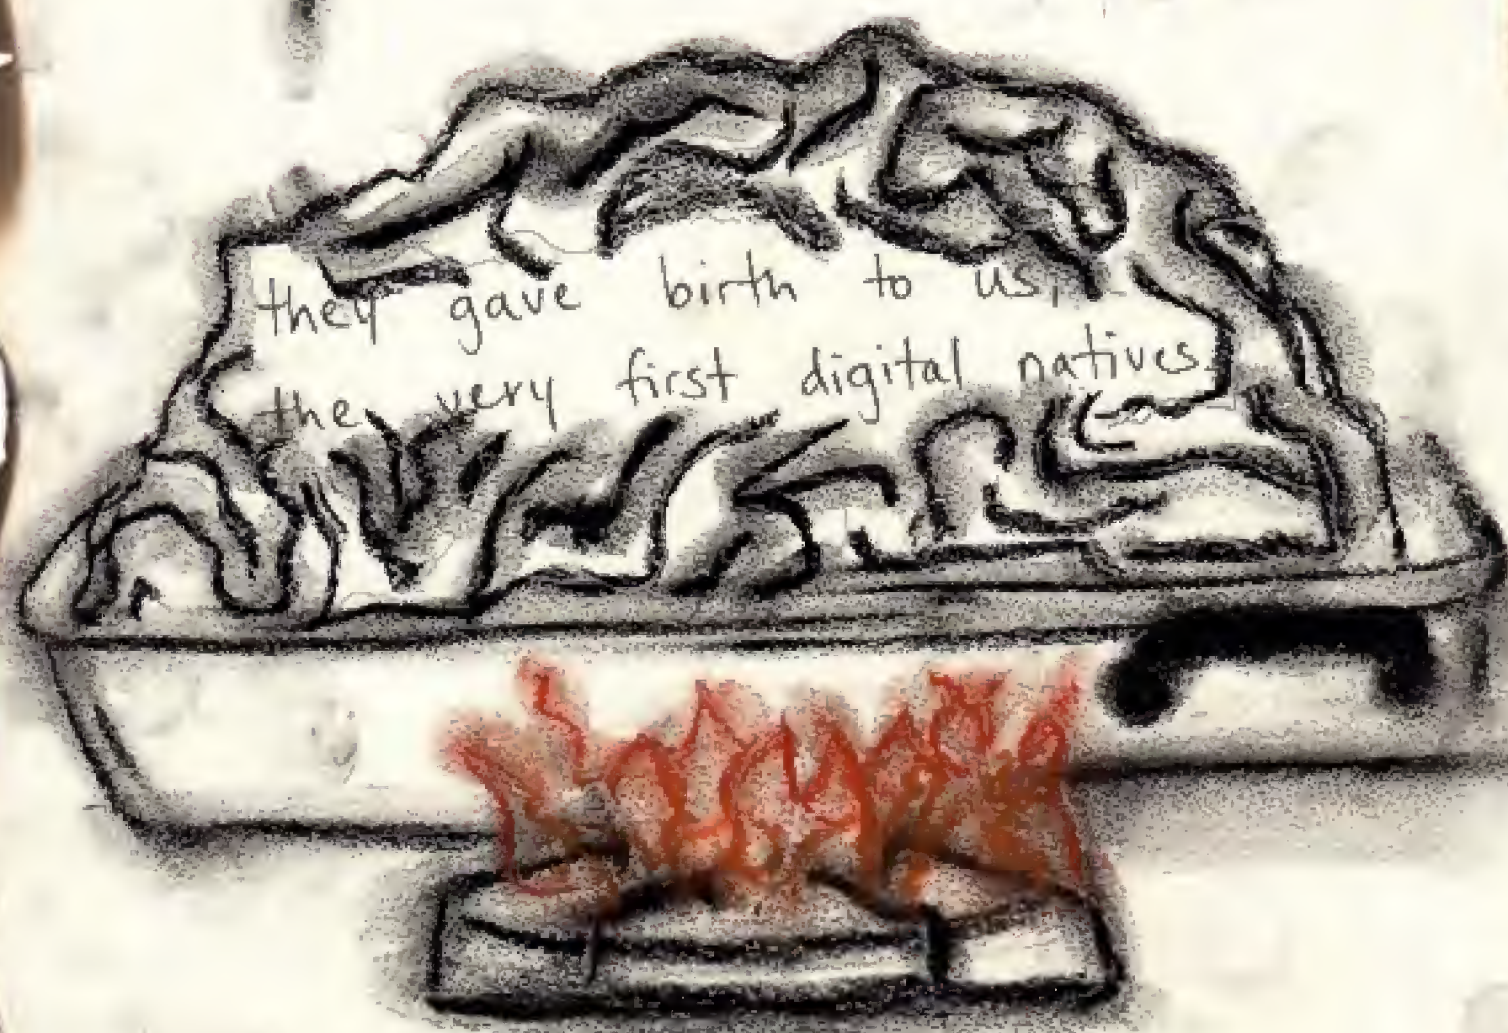 they gave birth to us,
the very first digital natives.